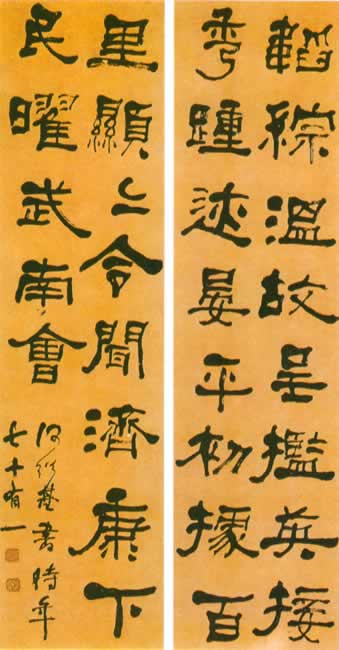 韜綜溫故呈㩜英接
秀踵迹晏平初據百
里顯〻令聞濟康下
民曜武南會
何紹基書時年
七十有一